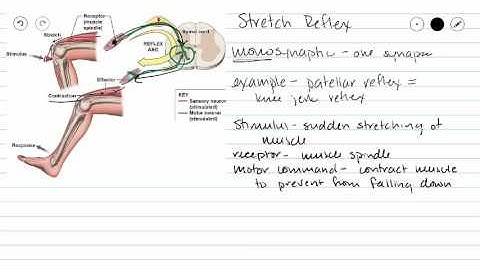 Receptor
(muscle
spindle)
Stretch
Stimulus
Spinal cord
REFLEX
ARC
Effector
Contraction
KEY
Sensory neuron
(stimulated)
Motor neuron
(stimulated)
Response
Stretch Reflex
monosynaptic - one synapse
example - patellar reflex =
knee jerk reflex
Stimulus - sudden stretching of
muscle
receptor - muscle spindle
motor command - contract muscle
to prevent from falling down